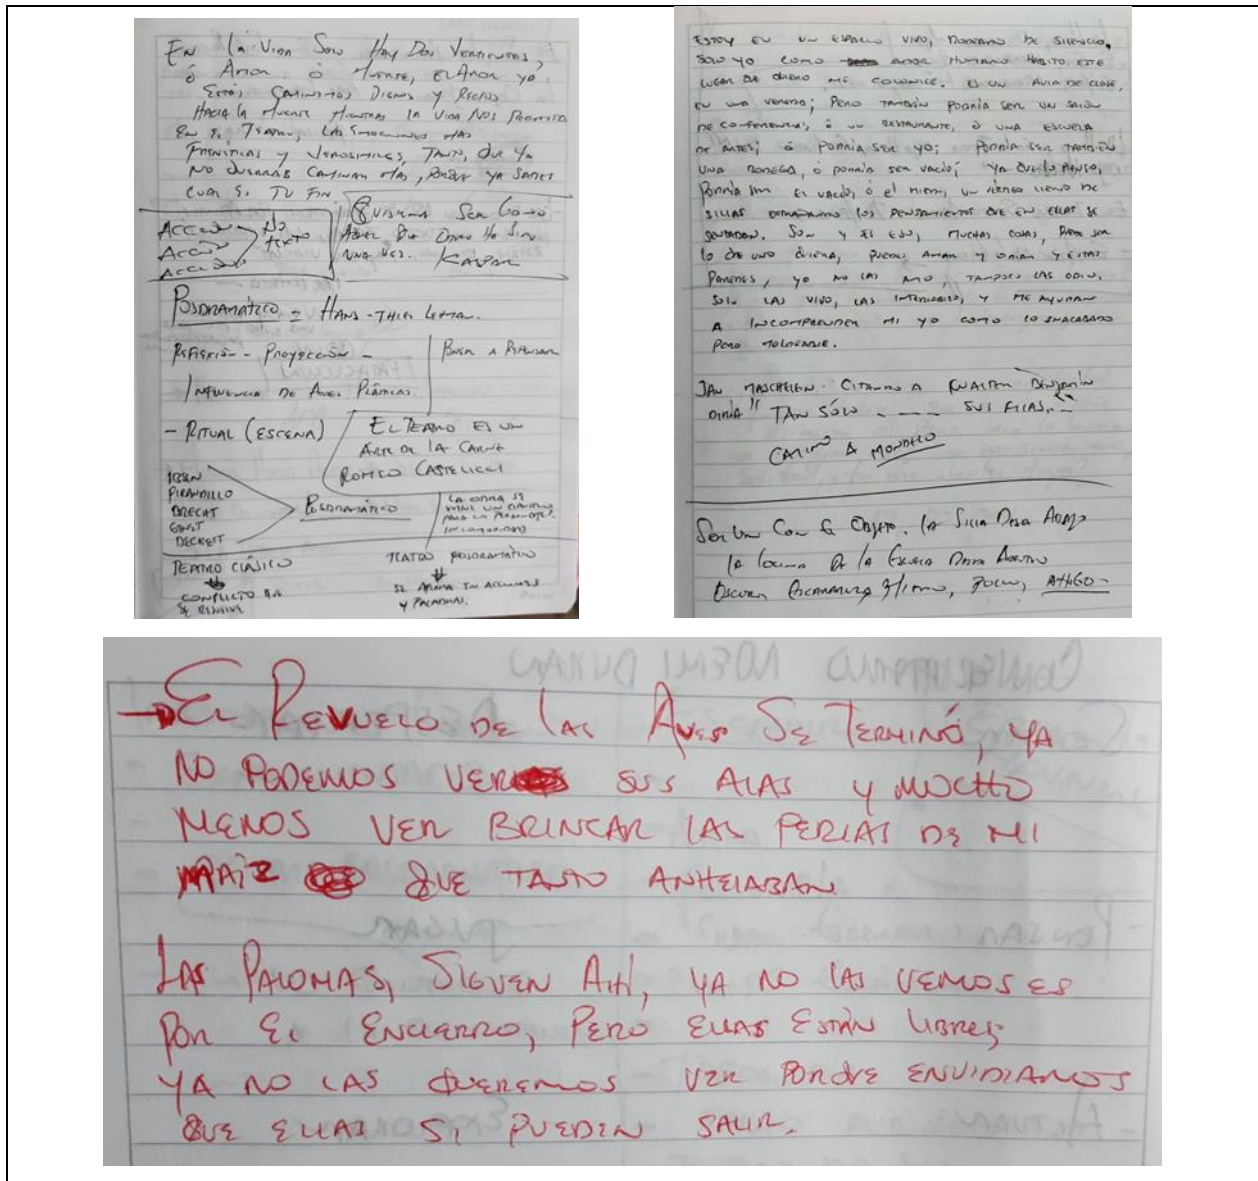 En la Vida Solo Hay Dos Vertientes,
ó Amor ó Muerte, El Amor yo
Caminemos Dignos y Rectos
Hacia la Muerte Mientras la Vida Nos Permita
En el Teatro, las Emociones más
Frenéticas y Verosímiles, Tanto, que ya
No Caminar más, porque ya sabes
Cual es tu Fin.
Acción
Acción
Acción
No
Texto
Quisiera Ser Como
Una Vez. Kaspar
Posdramático = Hans-Thies Lehman.
Reflexión - Proyección -
Poner a Repensar
Influencia de Artes Plásticas.
- Ritual (Escena)
El Teatro es un
Arte de la Carne
Romeo Castellucci
Ibsen
Pirandillo
Brecht
Beckett
Posdramático
La obra se
Teatro Clásico
Conflicto
se resuelve
Teatro Posdramático
se arma en acciones
y palabras.
Estoy en un espacio vivo, rodeado de silencio,
solo yo como actor humano habito este
lugar que quiero me colonice. Es un aula de clase,
en una vereda; pero también podría ser un salón
de conferencias, ó un restaurante, ó una escuela
de artes; ó podría ser yo; podría ser también
una bodega, ó podría ser vacío; ya que lo pienso,
podría ser el vacío, ó el miedo, un lleno de
sillas extrañando los pensamientos que en ellas se
sentaban. Son y es eso, muchas cosas, puede ser
lo que uno quiera, pueden amar y odiar y estas
paredes, yo no las amo, tampoco las odio.
Solo las vivo, las interiorizo, y me ayudan
a incomprender mi yo como lo inacabado
pero tolerable.
Jan Maschelein citando a Walter Benjamin
diría "Tan sólo - - - - sus filas, - -
Camino a Mondoñedo
Ser Uno Con el Objeto. la Silla
la locura de la Escuela
Oscuro,
El Revuelo de las Aves Se Terminó, ya
no podemos ver sus alas y mucho
menos ver brincar las perlas de mi
maíz que tanto anhelaban.
Las Palomas, Siguen Ahí, ya no las vemos es
por el encierro, pero ellas están libres,
ya no las queremos ver porque envidiamos
que ellas si pueden salir.